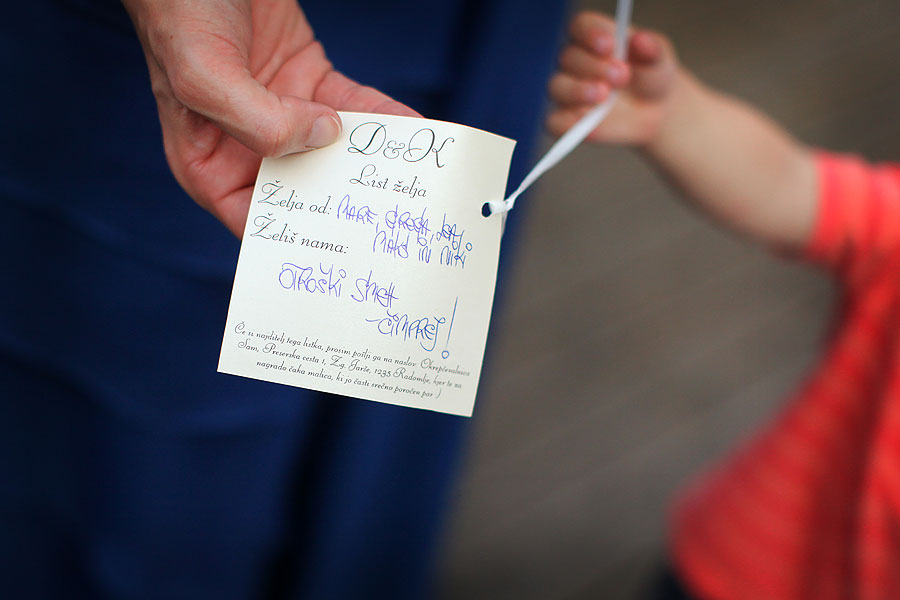 D&K
List želja
Želja od: MARE, GREGA, LEA,
Želiš nama: MAKS IN NIKI
OTROŠKI SMEH
– ČIMPREJ!
Če si najditelj tega listka, prosim pošlji ga na naslov: Okrepčevalnica
Sam, Preserska cesta 1, Zg. Jarše, 1235 Radomlje, kjer te za
nagrado čaka malica, ki jo časti srečno poročen par :)